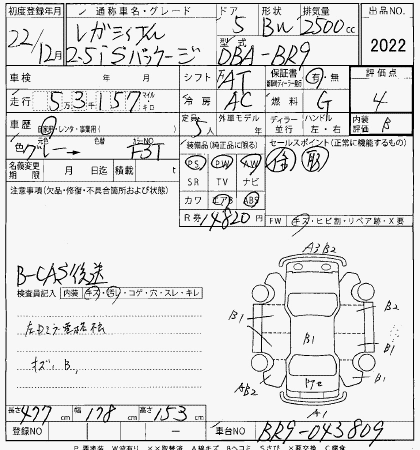 初度登録年月 通称車名・グレード ドア 形状 排気量 出品NO.
22年12月 レガシィ 2.5iSパッケージ 5 Bw 2500cc
型式 DBA-BR9 2022
車検 年 月 シフト FAT 保証書 有・無 評価点
走行 5 3千 1 5 7 マイル キロ 冷房 AC 燃料 G 4
車歴 自家用・レンタ・事業用( ) 定員 5人 外車モデル 年 ディーラー 並行 ハンドル 左・右 内装評価 B
色 グレー 色替 カラーNO F3T 装備品(純正品に限る) セールスポイント(正常に機能するもの)
PS PW AW 取
名義変更期限 月 日迄 積載量 t SR TV ナビ
注意事項(欠品・修復・不具合箇所および状態) カワ エアB ABS
R券 14820円 FW キズ・ヒビ割・リペア跡・X要
B-CAS後送
検査員記入 内装 キズ・汚レ・コゲ・穴・スレ・キレ
キズ、B、
A3 B2
B1 B2
B1 B1
B1
AB2 B1
A1
長さ 477cm 幅 178cm 高さ 153cm
登録NO 車台NO BR9-043809